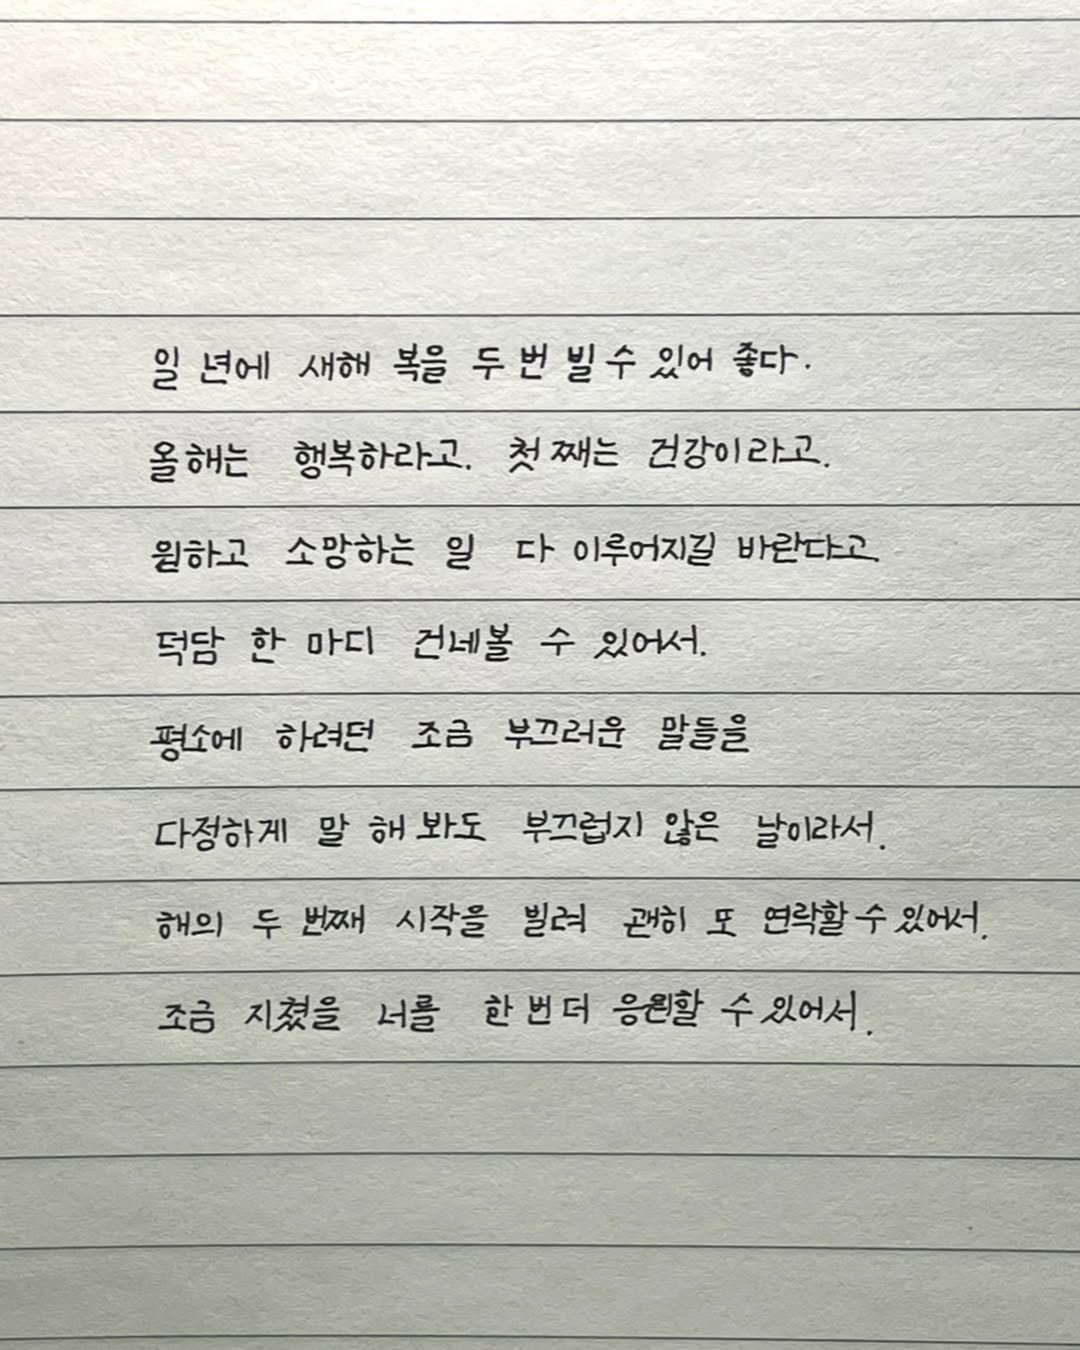 일 년에 새해 복을 두 번 빌 수 있어 좋다.
올해는 행복하라고. 첫 째는 건강이라고.
원하고 소망하는 일 다 이루어지길 바란다고.
덕담 한 마디 건네볼 수 있어서.
평소에 하려던 조금 부끄러운 말들을
다정하게 말 해 봐도 부끄럽지 않은 날이라서.
해의 두 번째 시작을 빌려 괜히 또 연락할 수 있어서.
조금 지쳤을 너를 한 번 더 응원할 수 있어서.